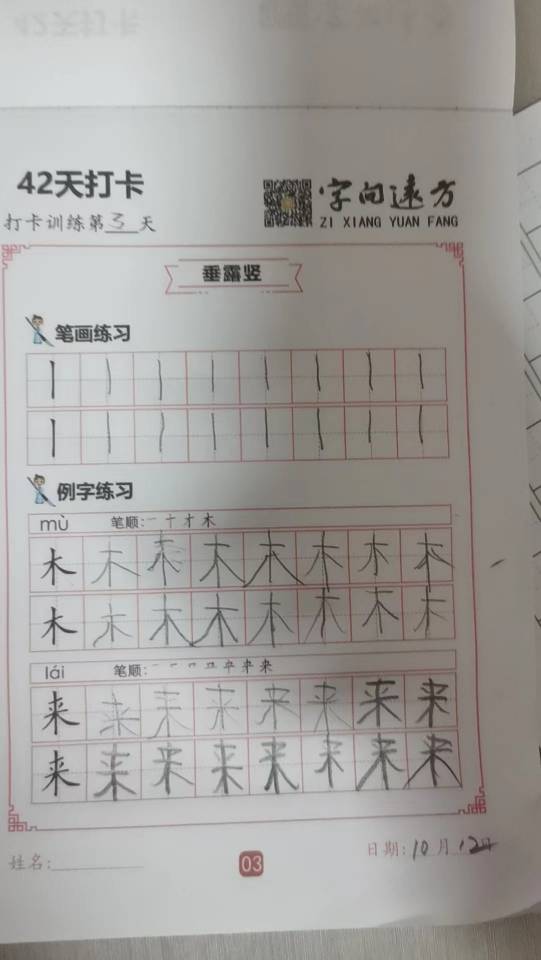 42天打卡
字向远方
ZI XIANG YUAN FANG
打卡训练第3天
垂露竖
笔画练习
丨丨丨丨丨丨丨丨
丨丨丨丨丨丨丨丨
例字练习
mù 笔顺:一十才木
木木木木木木木木
木木木木木木木木
lái 笔顺:
来来来来来来来来
来来来来来来来来
姓名:
03
日期:10月12日